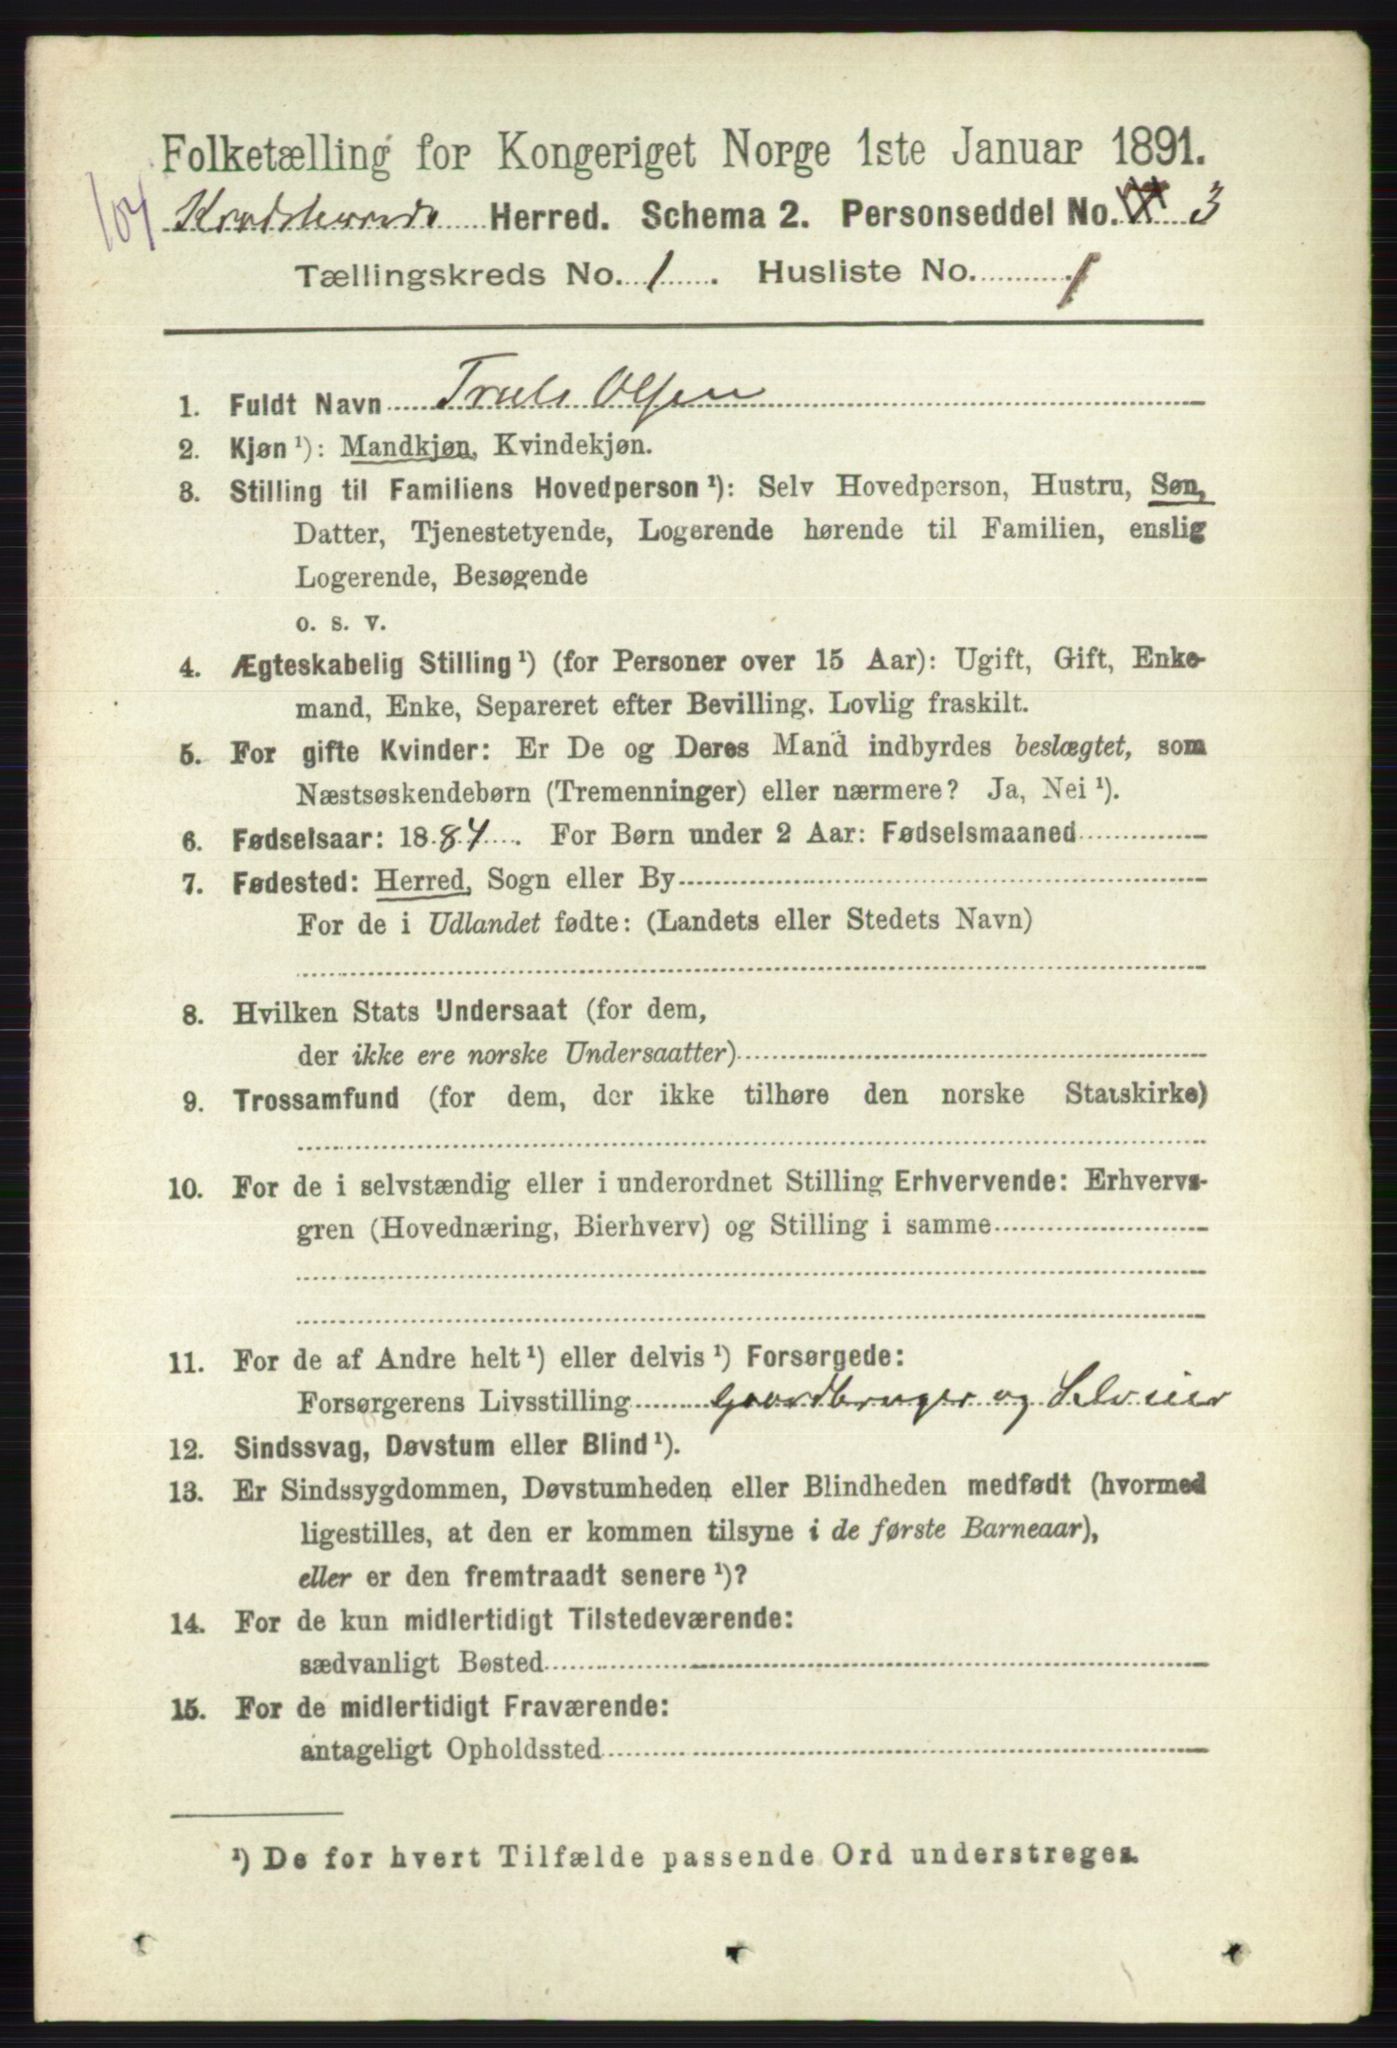 Folketælling for Kongeriget Norge 1ste Januar 1891.
104 Krødsherreds Herred. Schema 2. Personseddel No. 3
Tællingskreds No. 1. Husliste No. 1
1. Fuldt Navn Truls Olsen
2. Kjøn ¹): Mandkjøn, Kvindekjøn.
3. Stilling til Familiens Hovedperson ¹): Selv Hovedperson, Hustru, Søn,
Datter, Tjenestetyende, Logerende hørende til Familien, enslig
Logerende, Besøgende
o. s. v.
4. Ægteskabelig Stilling ¹) (for Personer over 15 Aar): Ugift, Gift, Enke-
mand, Enke, Separeret efter Bevilling. Lovlig fraskilt.
5. For gifte Kvinder: Er De og Deres Mand indbyrdes beslægtet, som
Næstsøskendebørn (Tremenninger) eller nærmere? Ja, Nei ¹).
6. Fødselsaar: 1884. For Børn under 2 Aar: Fødselsmaaned
7. Fødested: Herred, Sogn eller By
For de i Udlandet fødte: (Landets eller Stedets Navn)
8. Hvilken Stats Undersaat (for dem,
der ikke ere norske Undersaatter)
9. Trossamfund (for dem, der ikke tilhøre den norske Statskirke)
10. For de i selvstændig eller i underordnet Stilling Erhvervende: Erhvervs-
gren (Hovednæring, Bierhverv) og Stilling i samme
11. For de af Andre helt ¹) eller delvis ¹) Forsørgede:
Forsørgerens Livsstilling Gaardbruger og Selveier
12. Sindssvag, Døvstum eller Blind ¹).
13. Er Sindssygdommen, Døvstumheden eller Blindheden medfødt (hvormed
ligestilles, at den er kommen tilsyne i de første Barneaar),
eller er den fremtraadt senere ¹)?
14. For de kun midlertidigt Tilstedeværende:
sædvanligt Bosted
15. For de midlertidigt Fraværende:
antageligt Opholdssted
¹) De for hvert Tilfælde passende Ord understreges.